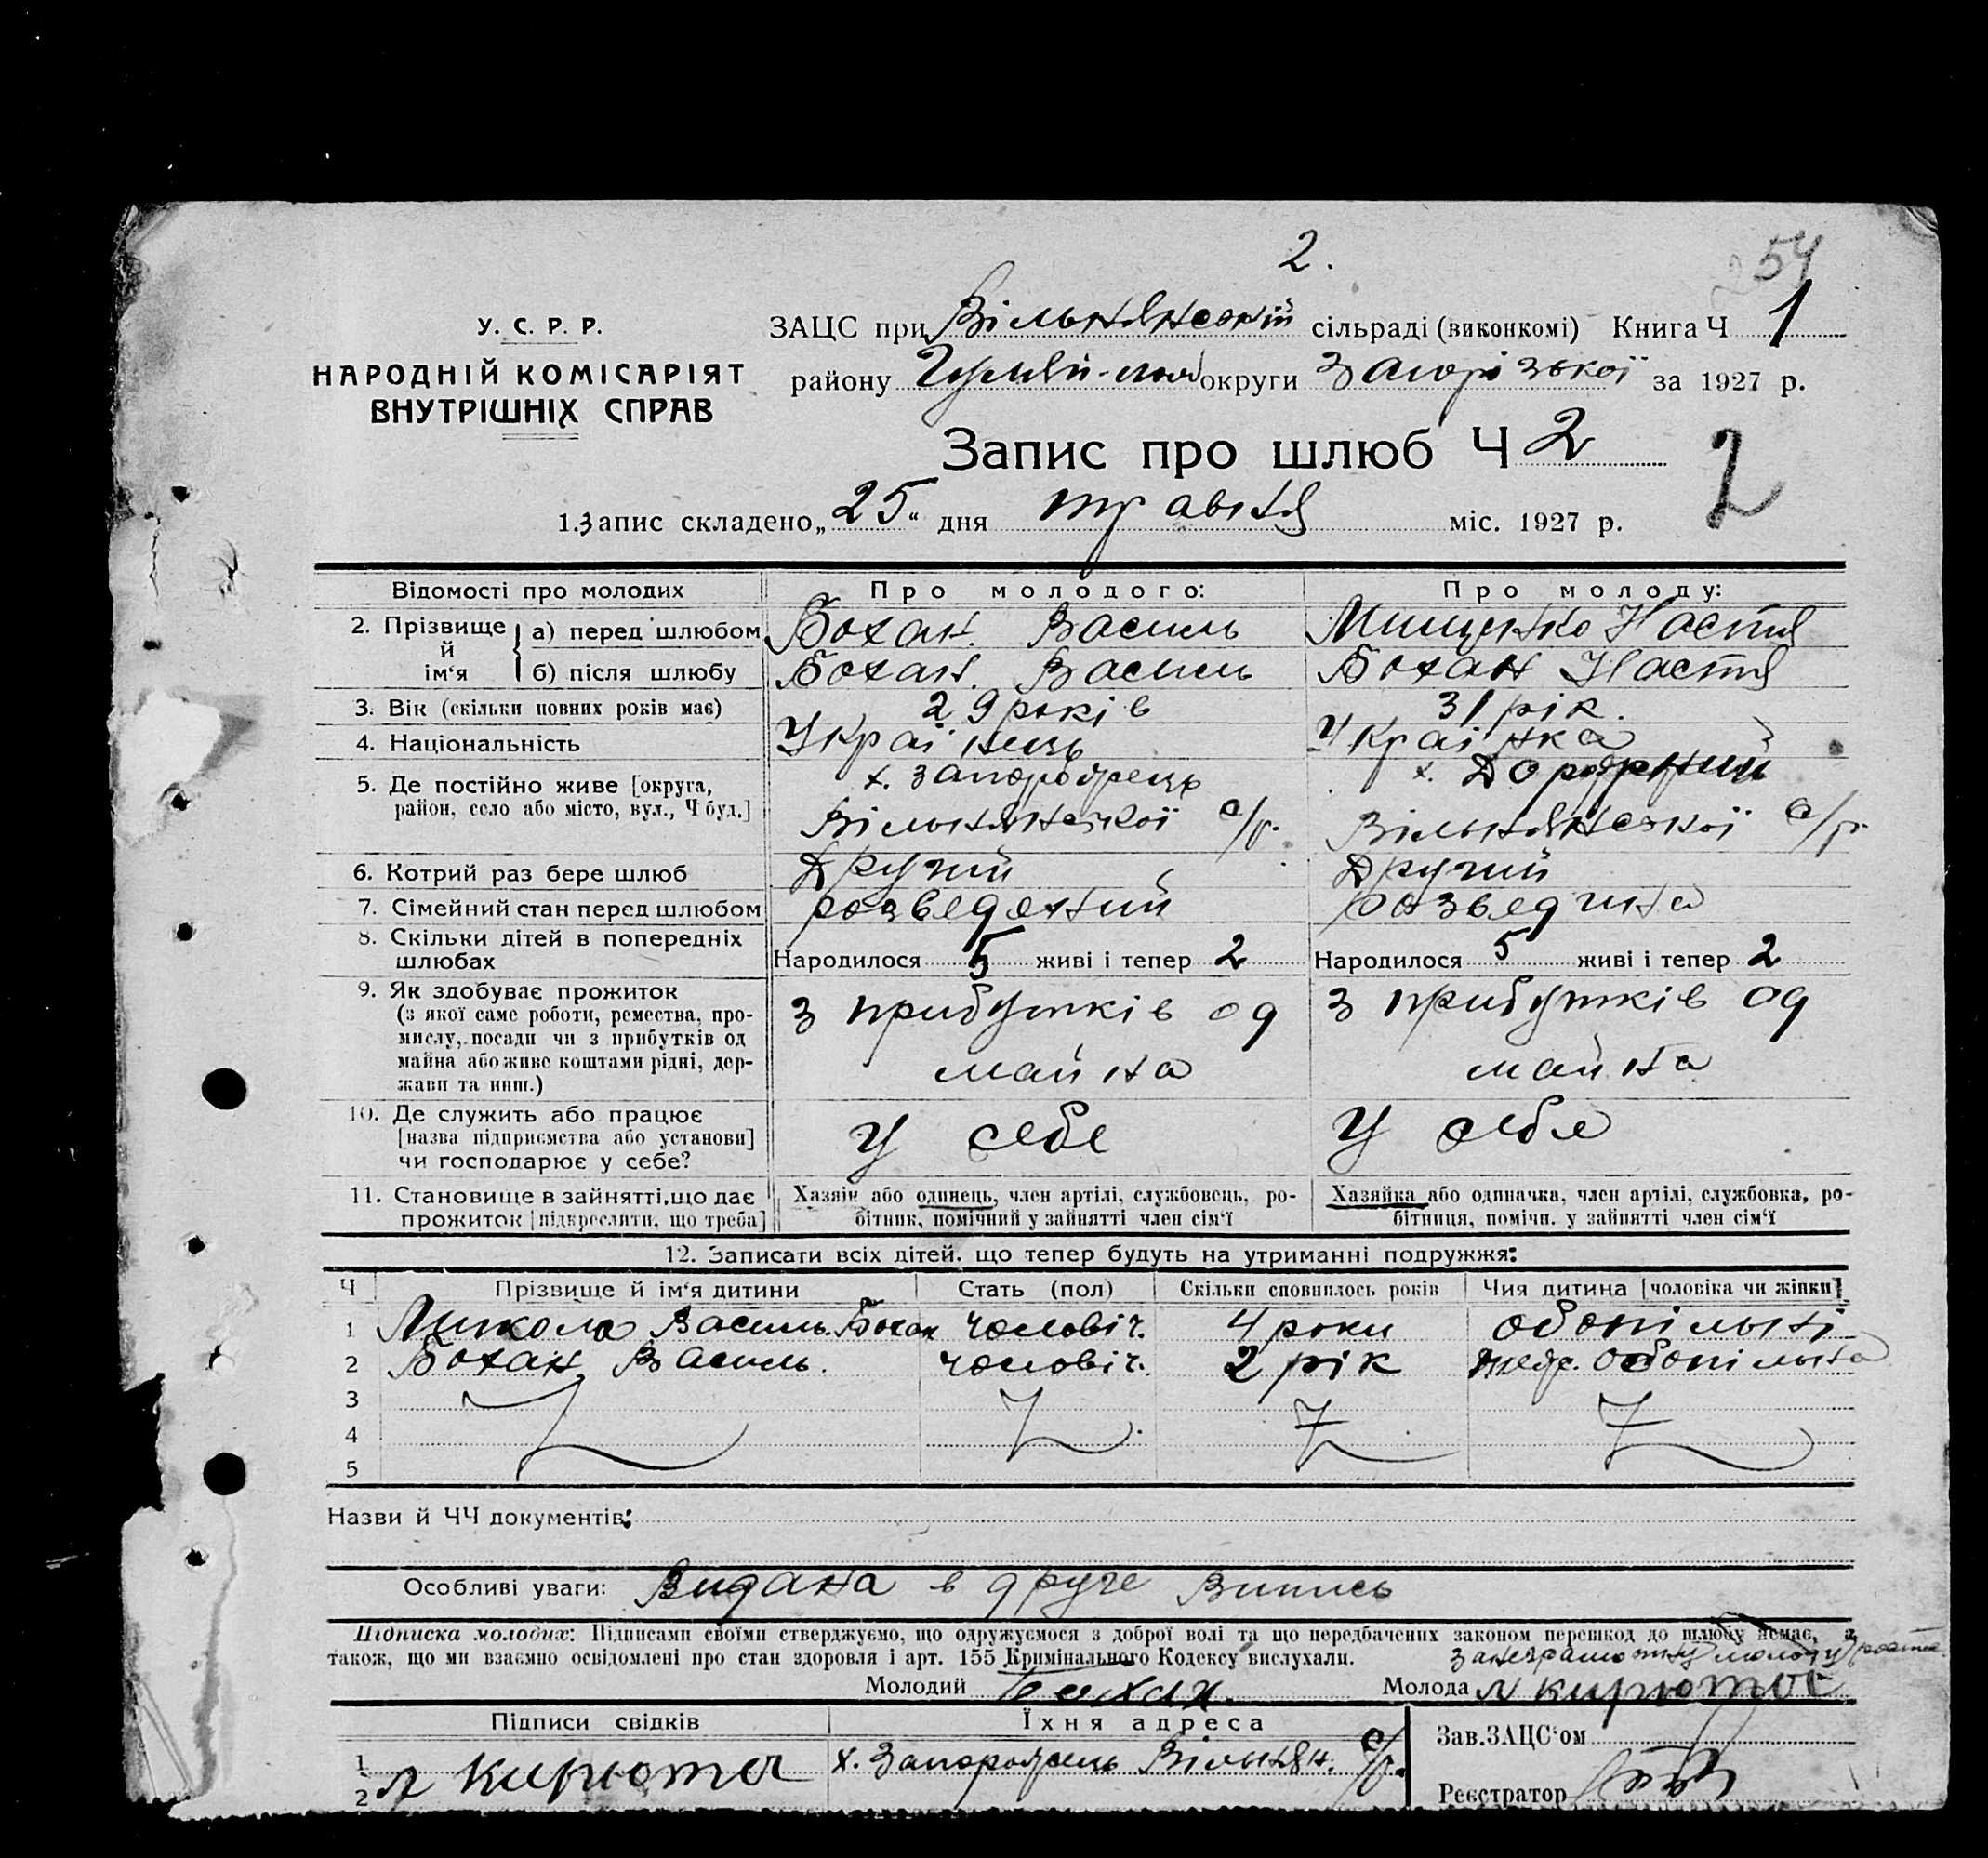 2.
54
У. С. Р. Р.
НАРОДНІЙ КОМІСАРІЯТ
ВНУТРІШНІХ СПРАВ
ЗАЦС при Вільнянській сільраді (виконкомі) Книга Ч 1
району Гуляй-пол округи Запорізької за 1927 р.
Запис про шлюб Ч 2
2
1. Запис складено „25“ дня травня міс. 1927 р.
Відомості про молодих Про молодого: Про молоду:
2. Прізвище й ім‘я а) перед шлюбом Бохан. Василь Мищенко Настя
б) після шлюбу Бохан. Василь Бохан Настя
3. Вік (скільки повних років має) 29 років 31 рік.
4. Національність Українець Українка
5. Де постійно живе [округа, х. Запорожець х.
район, село або місто, вул., Ч буд.] Вільнянської с/р. Вільнянської с/р.
6. Котрий раз бере шлюб Другий Другий
7. Сімейний стан перед шлюбом розведений розведина
8. Скільки дітей в попередніх
шлюбах Народилося 5 живі і тепер 2 Народилося 5 живі і тепер 2
9. Як здобуває прожиток
(з якої саме роботи, ремества, про- з прибутків од з прибутків од
мислу, посади чи з прибутків од
майна або живе коштами рідні, дер- майна майна
жави та инш.)
10. Де служить або працює
[назва підприємства або установи] у себе у себе
чи господарює у себе?
11. Становище в зайнятті, що дає Хазяїн або одинець, член артілі, службовець, ро- Хазяйка або одиначка, член артілі, службовка, ро-
прожиток [підкреслити, що треба] бітник, помічний у зайнятті член сім‘ї бітниця, помічн. у зайнятті член сім‘ї
12. Записати всіх дітей, що тепер будуть на утриманні подружжя:
Ч Прізвище й ім‘я дитини Стать (пол) Скільки сповнилось років Чия дитина [чоловіка чи жінки]
1 Микола Василь. Бохан чоловіч. 4 роки обопільні
2 Бохан Василь. чоловіч. 2 рік обопільна
3
4
5
Назви й ЧЧ документів:
Особливі уваги: Видана в друге Випись
Підписка молодих: Підписами своїми стверджуємо, що одружуємося з доброї волі та що передбачених законом перешкод до шлюбу немає, а
також, що ми взаємно освідомлені про стан здоровля і арт. 155 Кримінального Кодексу вислухали.
за неграмотну молоду
Молодий Бохан. Молода Л Кирюто
Підписи свідків Їхня адреса Зав. ЗАЦС‘ом
1 Л Кирюта х. Запорожець Вільнян. с/р.
2
Реєстратор